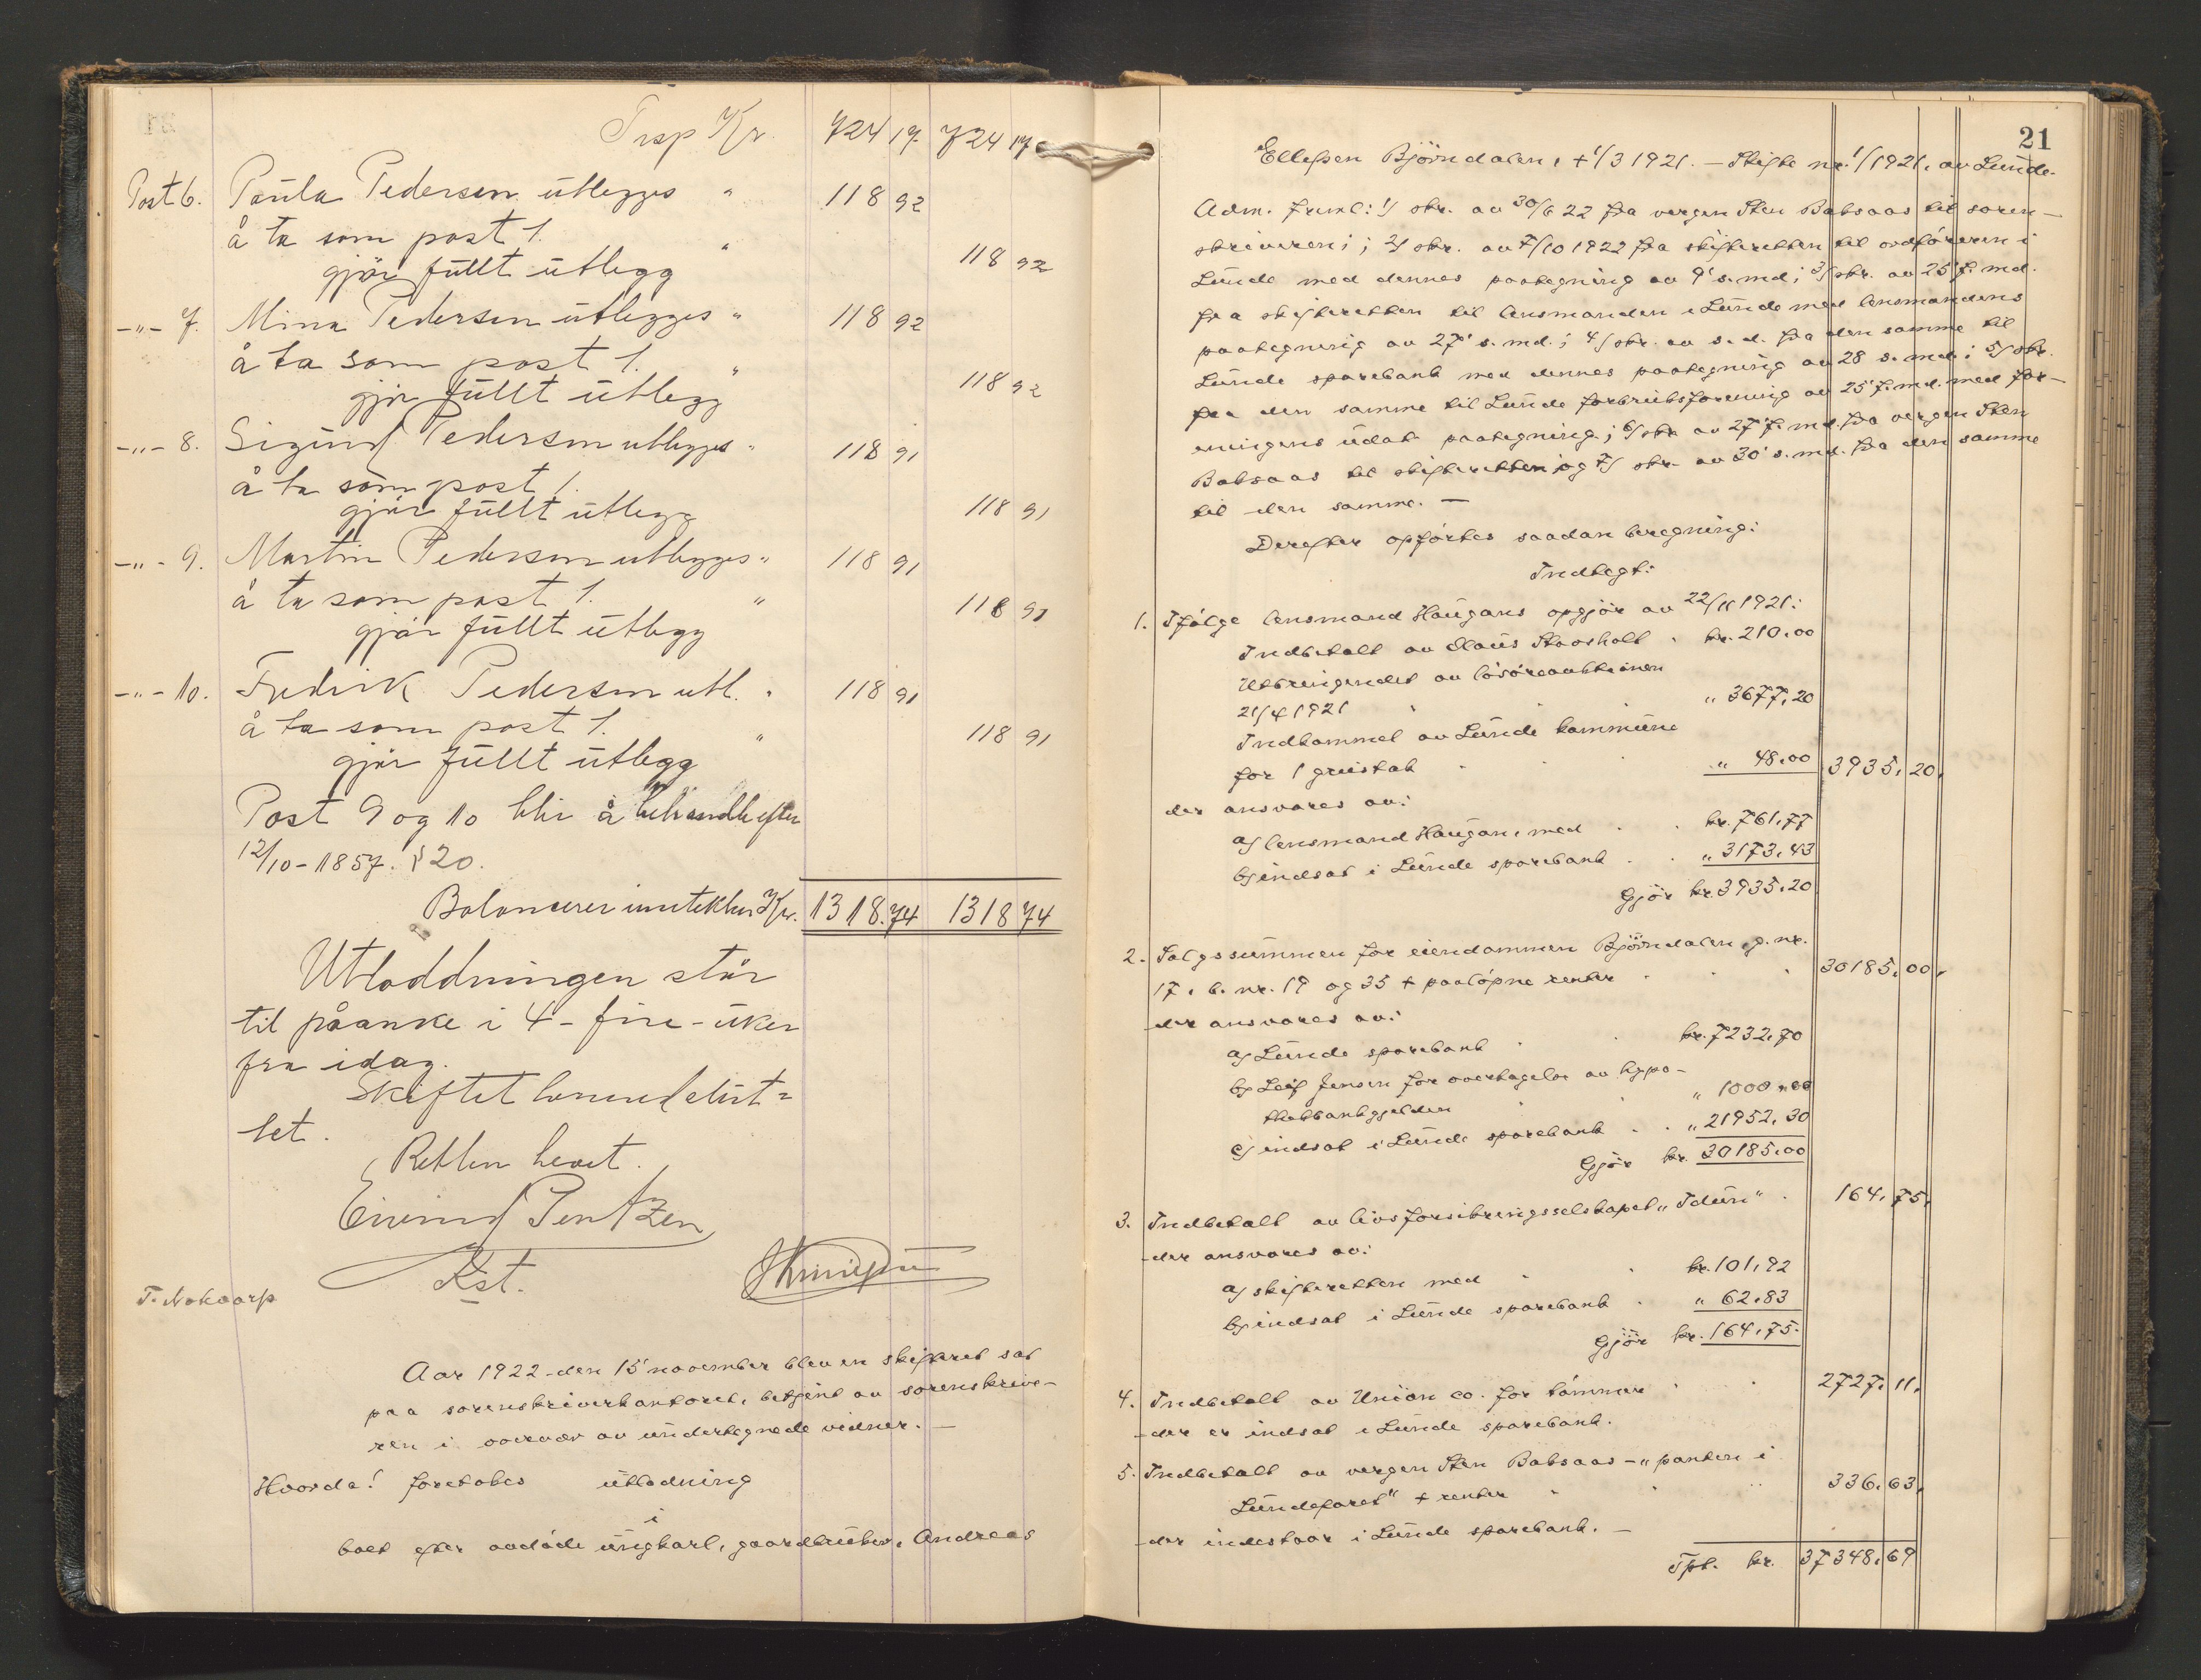 Trsp Kr. 724 17 724 17
Post 6. Paula Pedersen utlegges " 118 92
å ta som post 1.
gjør fullt utlegg " 118 92
-"- 7. Mina Pedersen utlegges " 118 92
å ta som post 1.
gjør fullt utlegg " 118 92
-"- 8. Sigurd Pedersen utlegges " 118 91
å ta som post 1.
gjør fullt utlegg 118 91
-"- 9. Martin Pedersen utlegges " 118 91
å ta som post 1.
gjør fullt utlegg " 118 91
-"- 10. Fredrik Pedersen utl. " 118 91
å ta som post 1.
gjør fullt utlegg " 118 91
Post 9 og 10 blir å behandle efter
12/10-1857. § 20.
Balancerer Kr. 1318.74 1318 74
Utloddningen står
til påanke i 4-fire-uker
fra idag.
Skiftet herved slut=
tet.
Retten hevet.
Eivind Pentzen
Kst.
Aar 1922 den 15' november blev en skifteret sat
paa sorenskriverkontoret, betjent av sorenskrive-
ren i overvær av undertegnede vidner. —
Hvorda! foretokes utlodning
i
boet efter avdøde ungkarl, gaardbruker, Andreas
21
Ellefsen Bjørndalen, + 1/3 1921. — Skifte nr. 1/1921, av Lunde.
Adm. freml: 1/ skr. av 30/6 22 fra vergen Sten Baksaas til soren-
skriveren; 2/ skr. av 7/10 1922 fra skifteretten til ordføreren i
Lunde med dennes paategning av 9' s.md; 3/ skr. av 25' f. md.
fra skifteretten til lensmanden i Lunde med lensmandens
paategning av 27' s. md.; 4/ skr. av s. d. fra den samme til
Lunde sparebank med dennes paategning av 28 s. md; 5/ skr.
fra den samme til Lunde forbruksforening av 25' f. md. med for-
eningens udat. paategning; 6/ skr. av 27' f. md. fra vergen Sten
Baksaas til skifteretten og 7/ skr. av 30' s. md. fra den samme
til den samme. —
Derefter opførtes saadan beregning:
Indtegt:
1. Ifølge lensmand Haugans opgjør av 22/11 1921:
Indbetalt av Claus Staasholt . kr. 210.00
Utbringendet av løsøreauktionen
21/4 1921 . . " 3677,20
Indkommet av Lunde kommune
for 1 grustak . . . " 48.00 3935,20,
der ansvares av:
a/ lensmand Haugan, med . . kr. 761,77
b/ indsat i Lunde sparebank . . " 3173,43
Gjør kr. 3935.20
2. Salgssummen for eiendommen Bjørndalen, g. nr.
17, b. nr. 19 og 35 + paaløpne renter . . . 30185,00,
der ansvares av:
a/ Lunde sparebank . . kr. 7232,70
b/ Leif Jensen for overtagelse av hypo-
thekbankgjelden . . " 1000,00
c/ indsat i Lunde sparebank . . " 21952,30
Gjør kr. 30185.00
3. Indbetalt av livsforsikringsselskapet "Idun" . 164,75,
der ansvares av:
a/ skifteretten med . . kr. 101,92
b/ indsat i Lunde sparebank . " 62.83
Gjør kr. 164,75.
4. Indbetalt av Union co. for tømmer . . 2727,11,
der er indsat i Lunde sparebank.
5. Indbetalt av vergen Sten Baksaas - "panten i
Lundefaret" + renter . . . 336,63,
der indestaar i Lunde sparebank. —
Tpt. kr. 37348,69